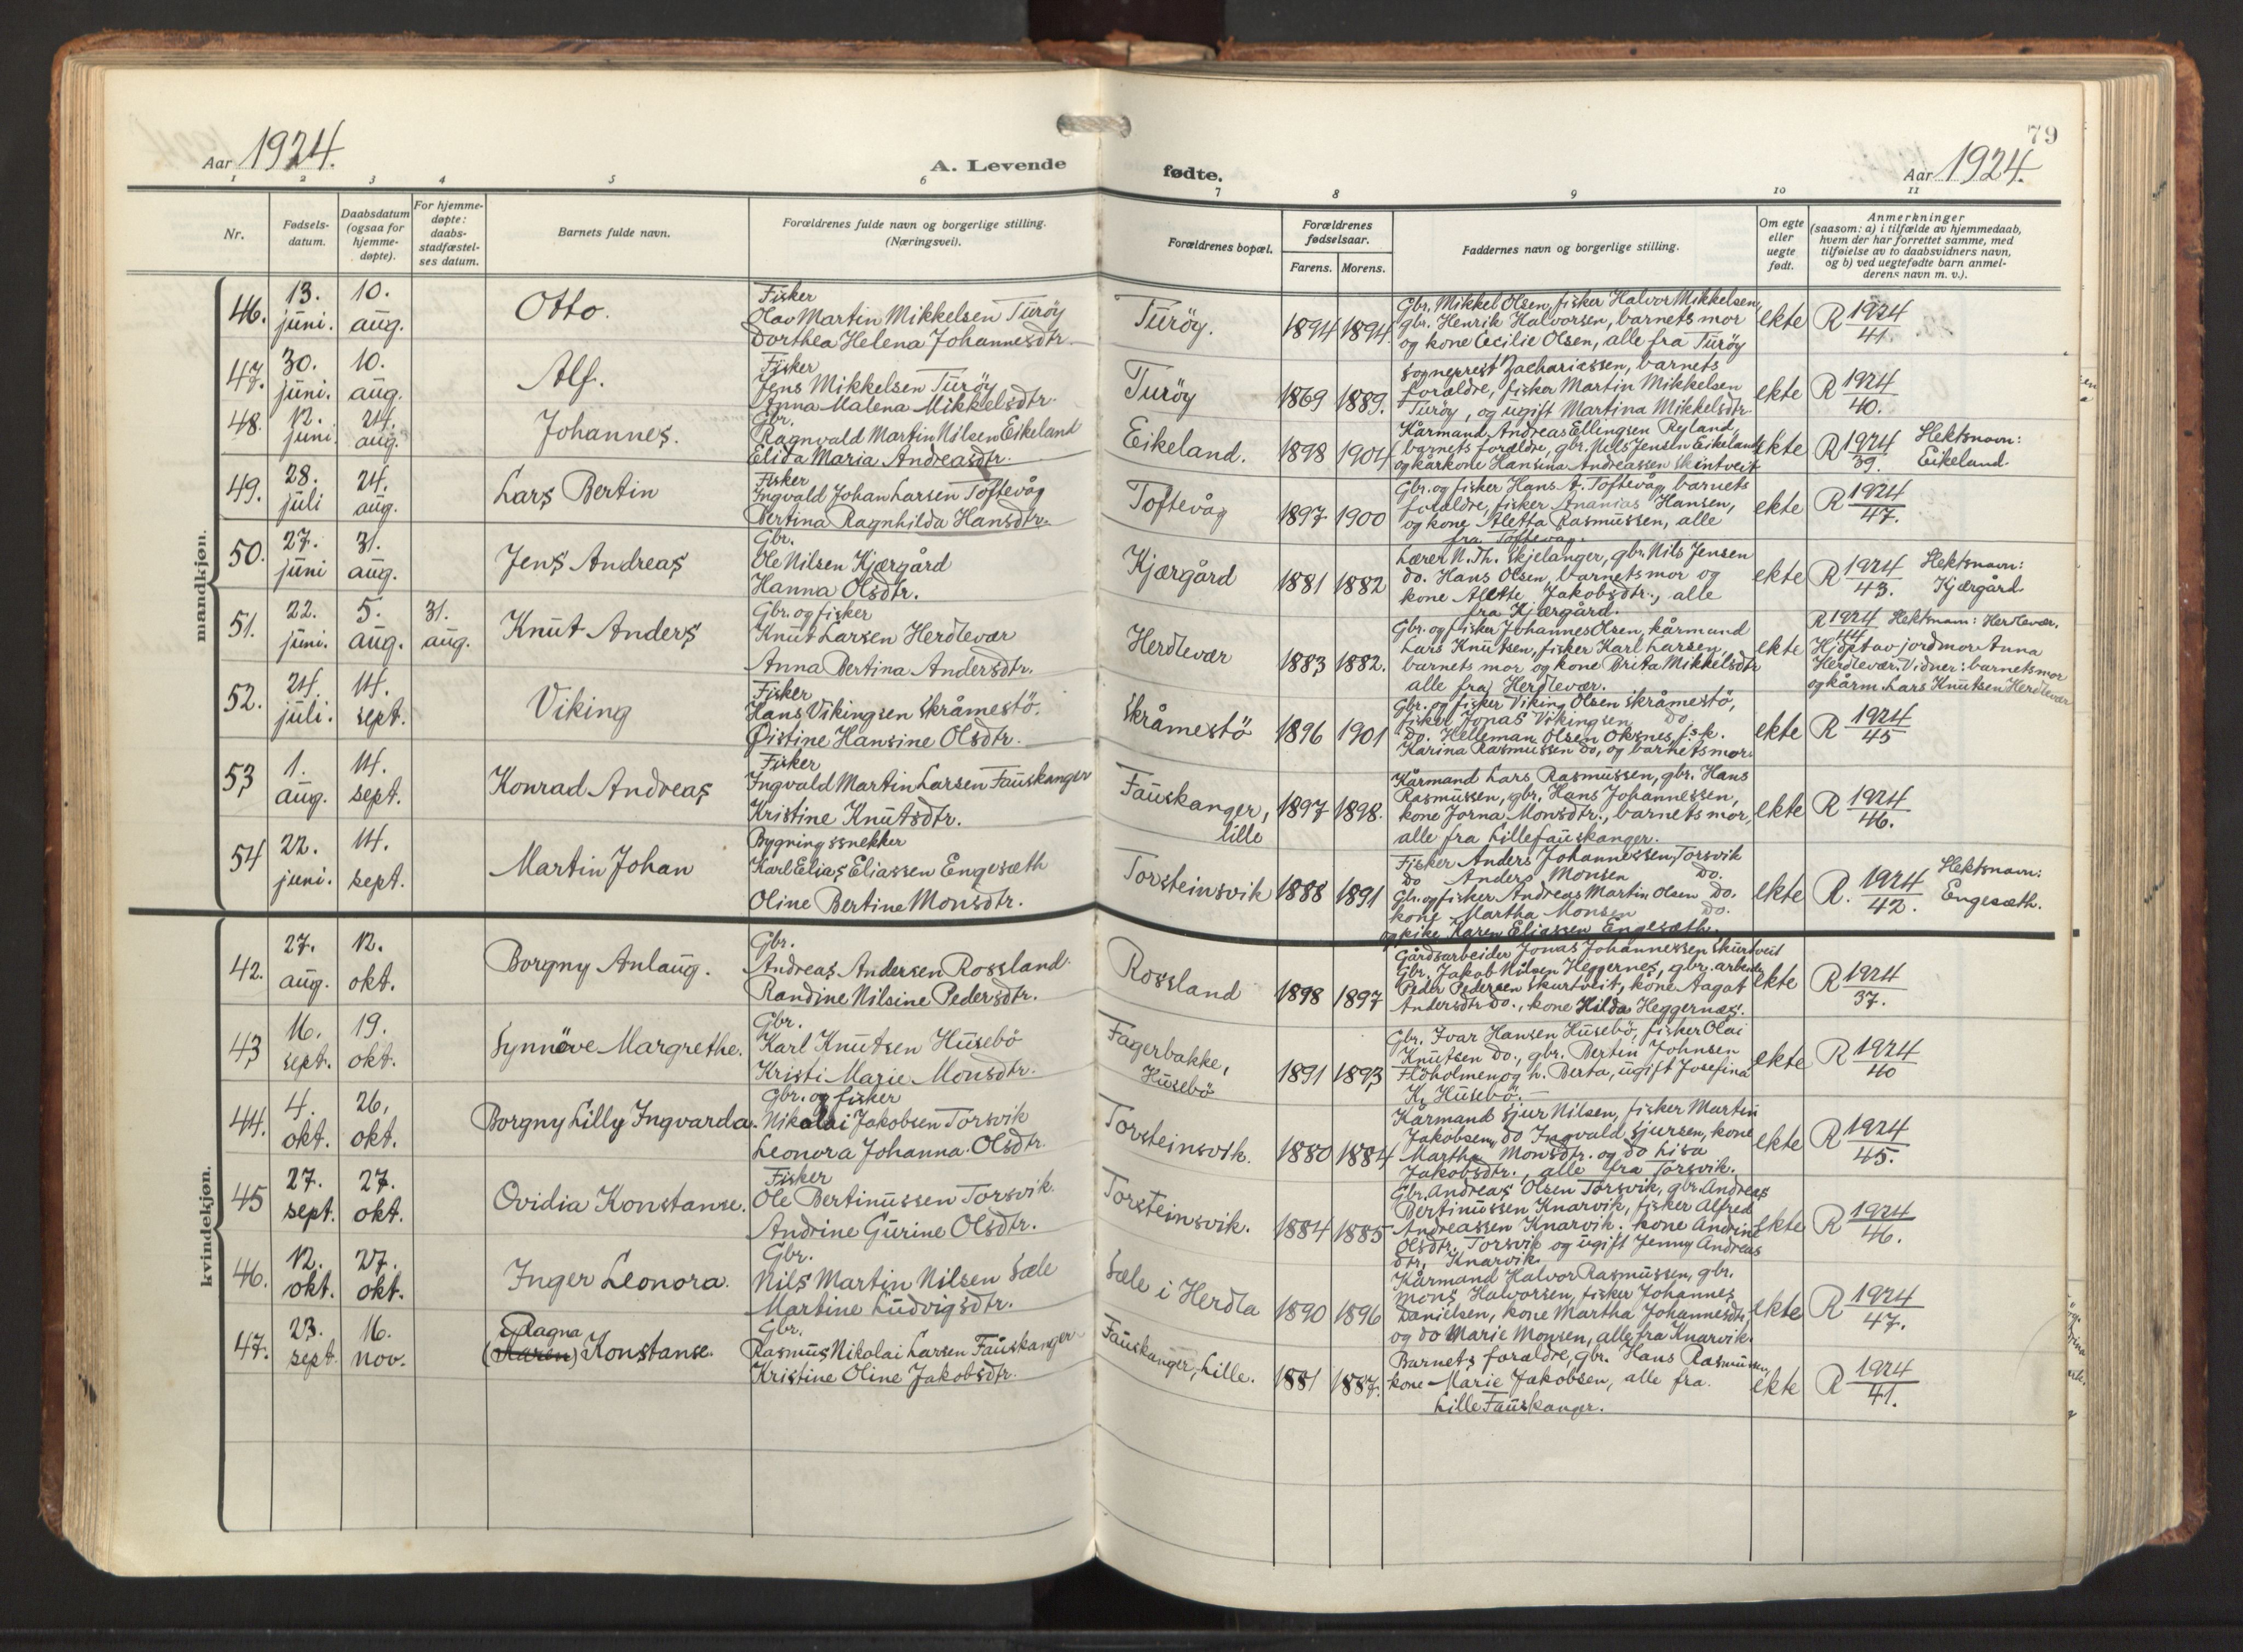 79
Aar 1924. A. Levende fødte. Aar 1924.
1 2 3 4 5 6 7 8 9 10 11
Nr.
Fødsels-
datum.
Daabsdatum
(ogsaa for
hjemme-
døpte).
For hjemme-
døpte:
daabs-
stadfæstel-
ses datum.
Barnets fulde navn.
Forældrenes fulde navn og borgerlige stilling.
(Næringsvei).
Forældrenes bopæl.
Forældrenes
fødselsaar.
Farens. Morens.
Faddernes navn og borgerlige stilling.
Om egte
eller
uegte
født.
Anmerkninger
(saasom: a) i tilfælde av hjemmedaab,
hvem der har forrettet samme, med
tilføielse av to daabsvidners navn,
og b) ved uegtefødte barn anmel-
derens navn m. v.).
mandkjøn.
46.
13.
juni.
10.
aug.
Otto.
Fisker
Olav Martin Mikkelsen Turöy
Dorthea Helena Johannesdtr.
Turöy.
1894 1894.
Gbr. Mikkel Olsen, fisker Halvor Mikkelsen,
gbr. Henrik Halvorsen, barnets mor
og kone Cecilie Olsen, alle fra Turöy
ekte
R 1924
41.
47.
30.
juni.
10.
aug.
Alf.
Fisker
Jens Mikkelsen Turöy
Anna Malena Mikkelsdtr.
Turöy
1869 1889.
Sogneprest Zachariassen, barnets
forældre, fisker Martin Mikkelsen
Turöy, og ugift Martina Mikkelsdtr.
ekte
R 1924
40.
48.
12.
juni.
24.
aug.
Johannes.
Gbr.
Ragnvald Martin Nilsen Eikeland
Elida Maria Andreasdtr.
Eikeland.
1898 1904
Kårmand Andreas Ellingsen Ryland,
barnets forældre, gbr. Nils Jensen Eikeland
og kårkone Hansina Andreassen Skintveit
ekte
R 1924
39.
Slektsnavn:
Eikeland.
49.
28.
juli
24.
aug.
Lars Bertin
Fisker
Ingvald Johan Larsen Toftevåg
Bertina Ragnhilda Hansdtr.
Toftevåg
1897 1900
Gbr. og fisker Hans A. Toftevåg, barnets
forældre, fisker Ananias Hansen,
og kone Aletta Rasmussen, alle
fra Toftevåg.
ekte
R 1924
47.
50.
27.
juni
31.
aug.
Jens Andreas
Gbr.
Ole Nilsen Kjærgård
Hanna Olsdtr.
Kjærgård
1881 1882
Lærer N. Th. Skjelanger, gbr. Nils Jensen
do. Hans Olsen, barnets mor og
kone Alette Jakobsdtr., alle
fra Kjærgård.
ekte
R 1924
43.
Slektsnavn:
Kjærgård.
51.
22.
juni.
5.
aug.
31.
aug.
Knut Anders
Gbr. og fisker
Knut Larsen Herdlevær
Anna Bertina Andersdtr.
Herdlevær
1883 1882.
Gbr. og fisker Johannes Olsen, kårmand
Lars Knutsen, fisker Karl Larsen,
barnets mor og kone Brita Mikkelsdtr
alle fra Herdlevær.
ekte
R 1924
44
Slektsnavn: Herdlevær.
Hjdpt av jordmor Anna
Herdlevær. Vidner: barnets mor
og kårm. Lars Knutsen Herdlevær
52.
24.
juli.
14.
sept.
Viking
Fisker
Hans Vikingsen Skråmestö.
Øistine Hansine Olsdtr.
Skråmestö
1896 1901
Gbr. og fisker Viking Olsen Skråmestö,
fisker Jonas Vikingsen do,
do. Helleman Olsen Oksnes, f.s.k.
Karina Rasmussen do, og barnets mor.
ekte
R 1924
45
53
1.
aug.
14.
sept.
Konrad Andreas
Fisker
Ingvald Martin Larsen Fauskanger
Kristine Knutsdtr.
Fauskanger,
lille
1897 1898.
Kårmand Lars Rasmussen, gbr. Hans
Rasmussen, gbr. Hans Johannessen,
kone Jorna Monsdtr., barnets mor,
alle fra Lillefauskanger.
ekte
R 1924
46.
54
22.
juni.
14.
sept.
Martin Johan
Bygningssnekker
Karl Elias Eliassen Engesæth
Oline Bertine Monsdtr.
Torsteinsvik
1888 1891
Fisker Anders Johannessen, Torsvik
do Anders Monsen do.
Gbr. og fisker Andreas Martin Olsen do.
kone Martha Monsen do.
og pike Karen Eliassen Engesæth.
ekte
R. 1924
42.
Slektsnavn:
Engesæth.
kvindekjøn.
42.
27.
aug.
12.
okt.
Borgny Anlaug.
Gbr.
Andreas Andersen Rossland.
Randine Nilsine Pedersdtr.
Rossland
1898 1897
Gårdsarbeider Jonas Johannessen Skurtveit
Gbr. Jakob Nilsen Heggernes, gbr. arbeider
Peder Pedersen Skurtveit, kone Aagot
Andersdtr do., kone Hilda Heggernæs.
ekte
R 1924
37.
43
16.
sept.
19.
okt.
Synnöve Margrethe.
Gbr.
Karl Knutsen Husebö
Kristi Marie Monsdtr.
Fagerbakke,
Husebö
1891 1893
Gbr. Ivar Hansen Husebö, fisker Olai
Knutsen do., gbr. Bertin Johnsen
Flöholmen og h. Berta, ugift Josefina
K. Husebö.
ekte
R 1924
40
44.
4.
okt.
26.
okt.
Borgny Lilly Ingvarda.
Gbr. og fisker
Nikolai Jakobsen Torsvik
Leonora Johanna Olsdtr.
Torsteinsvik.
1880 1884
Kårmand Sjur Nilsen, fisker Martin
Jakobsen, do Ingvald Sjursen, kone
Martha Monsdtr. og do Lisa
Jakobsdtr., alle fra Torsvik.
ekte
R 1924
45.
45
27.
sept.
27.
okt.
Ovidia Konstanse.
Fisker
Ole Bertinussen Torsvik.
Andrine Gurine Olsdtr.
Torsteinsvik.
1884 1885
Gbr. Andreas Olsen Torsvik, gbr. Andreas
Bertinussen Knarvik, fisker Alfred
Andreassen Knarvik. kone Andrine
Olsdtr. Torsvik og ugift Jenny Andreas
dtr. Knarvik.
ekte
R 1924
46.
46.
12.
okt.
27.
okt.
Inger Leonora.
Gbr.
Nils Martin Nilsen Sæle
Martine Ludvigsdtr.
Sæle i Herdla
1890 1896
Kårmand Halvor Rasmussen, gbr.
Mons Halvorsen, fisker Johannes
Danielsen, kone Martha Johannesdtr,
og do Marie Monsen, alle fra Knarvik.
ekte
R 1924
47.
47.
23.
sept.
16.
nov.
Ragna
(Karen) Konstanse.
Gbr.
Rasmus Nikolai Larsen Fauskanger
Kristine Oline Jakobsdtr.
Fauskanger, Lille.
1881 1887.
Barnets forældre, gbr. Hans Rasmussen,
kone Marie Jakobsen, alle fra
Lille Fauskanger.
ekte
R 1924
41.